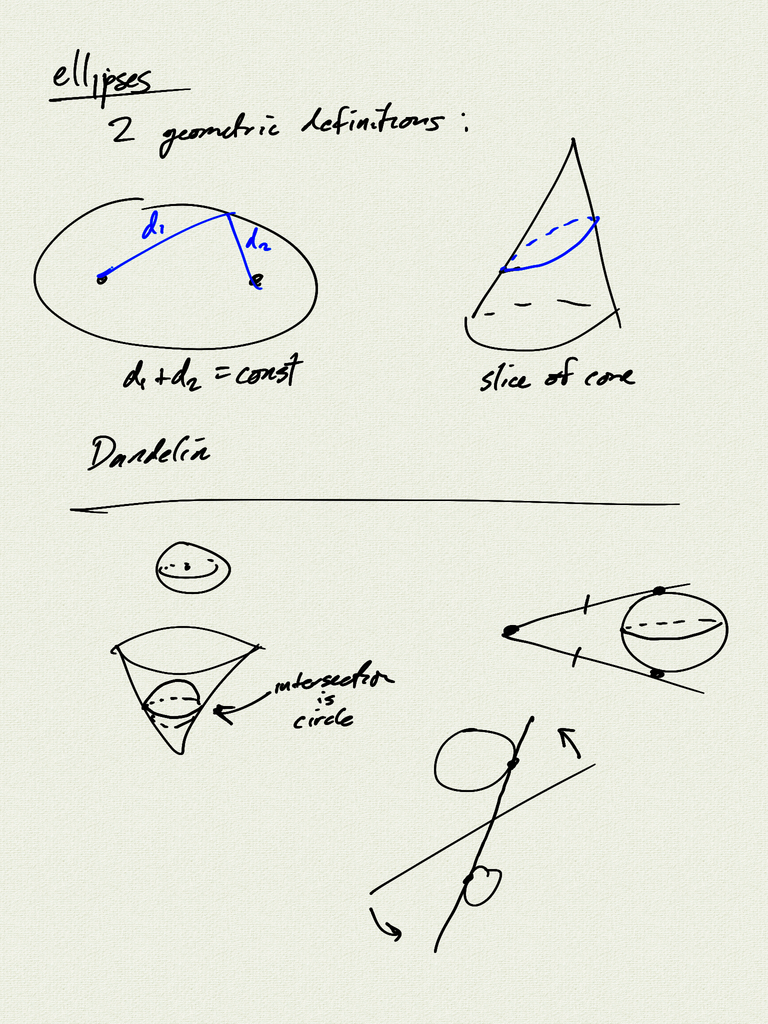 ellipses
2 geometric definitions:
d₁
d₂
d₁ + d₂ = const
slice of cone
Dandelin
intersection
is
circle